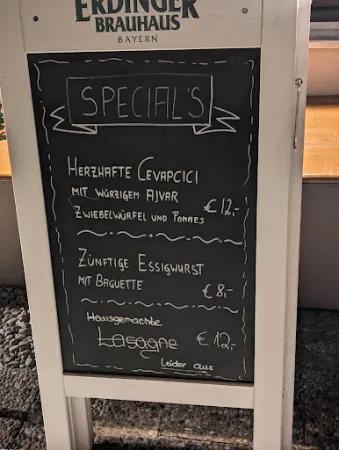 ERDINGER
BRAUHAUS
BAYERN
SPECIAL'S
HERZHAFTE CEVAPCICI
MIT WÜRZIGEM AJVAR
ZWIEBELWÜRFEL UND POMMES
€ 12,-
ZÜNFTIGE ESSIGWURST
MIT BAGUETTE
€ 8,-
Hausgemachte
Lasagne
€ 12,-
Leider aus